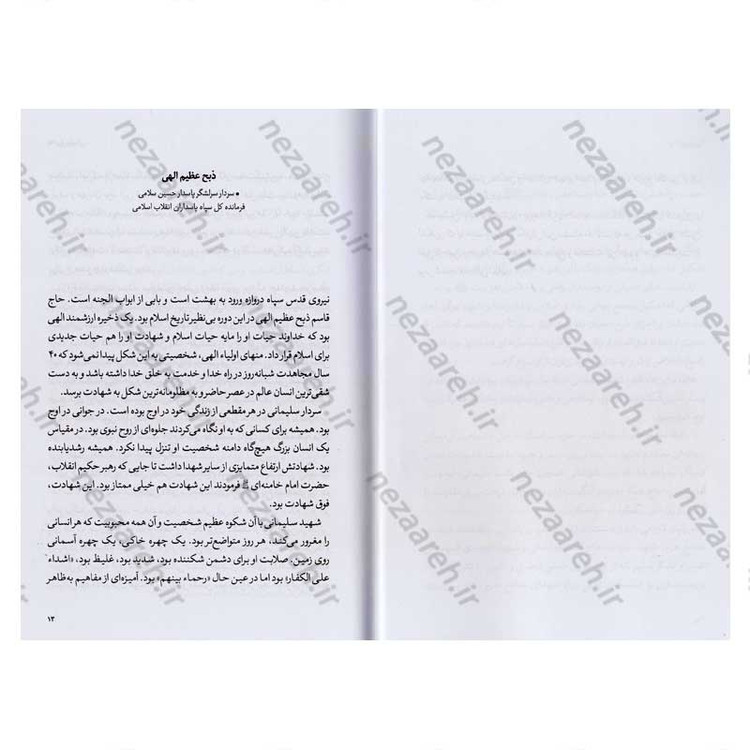 ذبح عظیم الهی
• سردار سرلشگر پاسدار حسین سلامی
فرمانده کل سپاه پاسداران انقلاب اسلامی
نیروی قدس سپاه دروازه ورود به بهشت است و بابی از ابواب الجنه است. حاج
قاسم ذبح عظیم الهی در این دوره بی‌نظیر تاریخ اسلام بود. یک ذخیره ارزشمند الهی
بود که خداوند حیات او را مایه حیات اسلام و شهادت او را هم حیات جدیدی
برای اسلام قرار داد. منهای اولیاء الهی، شخصیتی به این شکل پیدا نمی‌شود که ۴۰
سال مجاهدت شبانه‌روز در راه خدا و خدمت به خلق خدا داشته باشد و به دست
شقی‌ترین انسان عالم در عصر حاضر و به مظلومانه‌ترین شکل به شهادت برسد.
سردار سلیمانی در هر مقطعی از زندگی خود در اوج بوده است. در جوانی در اوج
بود. همیشه برای کسانی که به او نگاه می‌کردند جلوه‌ای از روح نبوی بود. در مقیاس
یک انسان بزرگ هیچ‌گاه دامنه شخصیت او تنزل پیدا نکرد. همیشه رشدیابنده
بود. شهادتش ارتفاع متمایزی از سایر شهدا داشت تا جایی که رهبر حکیم انقلاب،
حضرت امام خامنه‌ای فرمودند این شهادت هم خیلی ممتاز بود. این شهادت،
فوق شهادت بود.
شهید سلیمانی با آن شکوه عظیم شخصیت و آن همه محبوبیت که هر انسانی
را مغرور می‌کند، هر روز متواضع‌تر بود. یک چهره خاکی، یک چهره آسمانی
روی زمین. صلابت او برای دشمن شکننده بود، شدید بود، غلیظ بود، «اشداء
علی الکفار» بود اما در عین حال «رحماء بینهم» بود. آمیزه‌ای از مفاهیم به‌ظاهر
۱۳
nezaareh.ir
nezaareh.ir
nezaareh.ir
nezaareh.ir
nezaareh.ir
nezaareh.ir
nezaareh.ir
nezaareh.ir